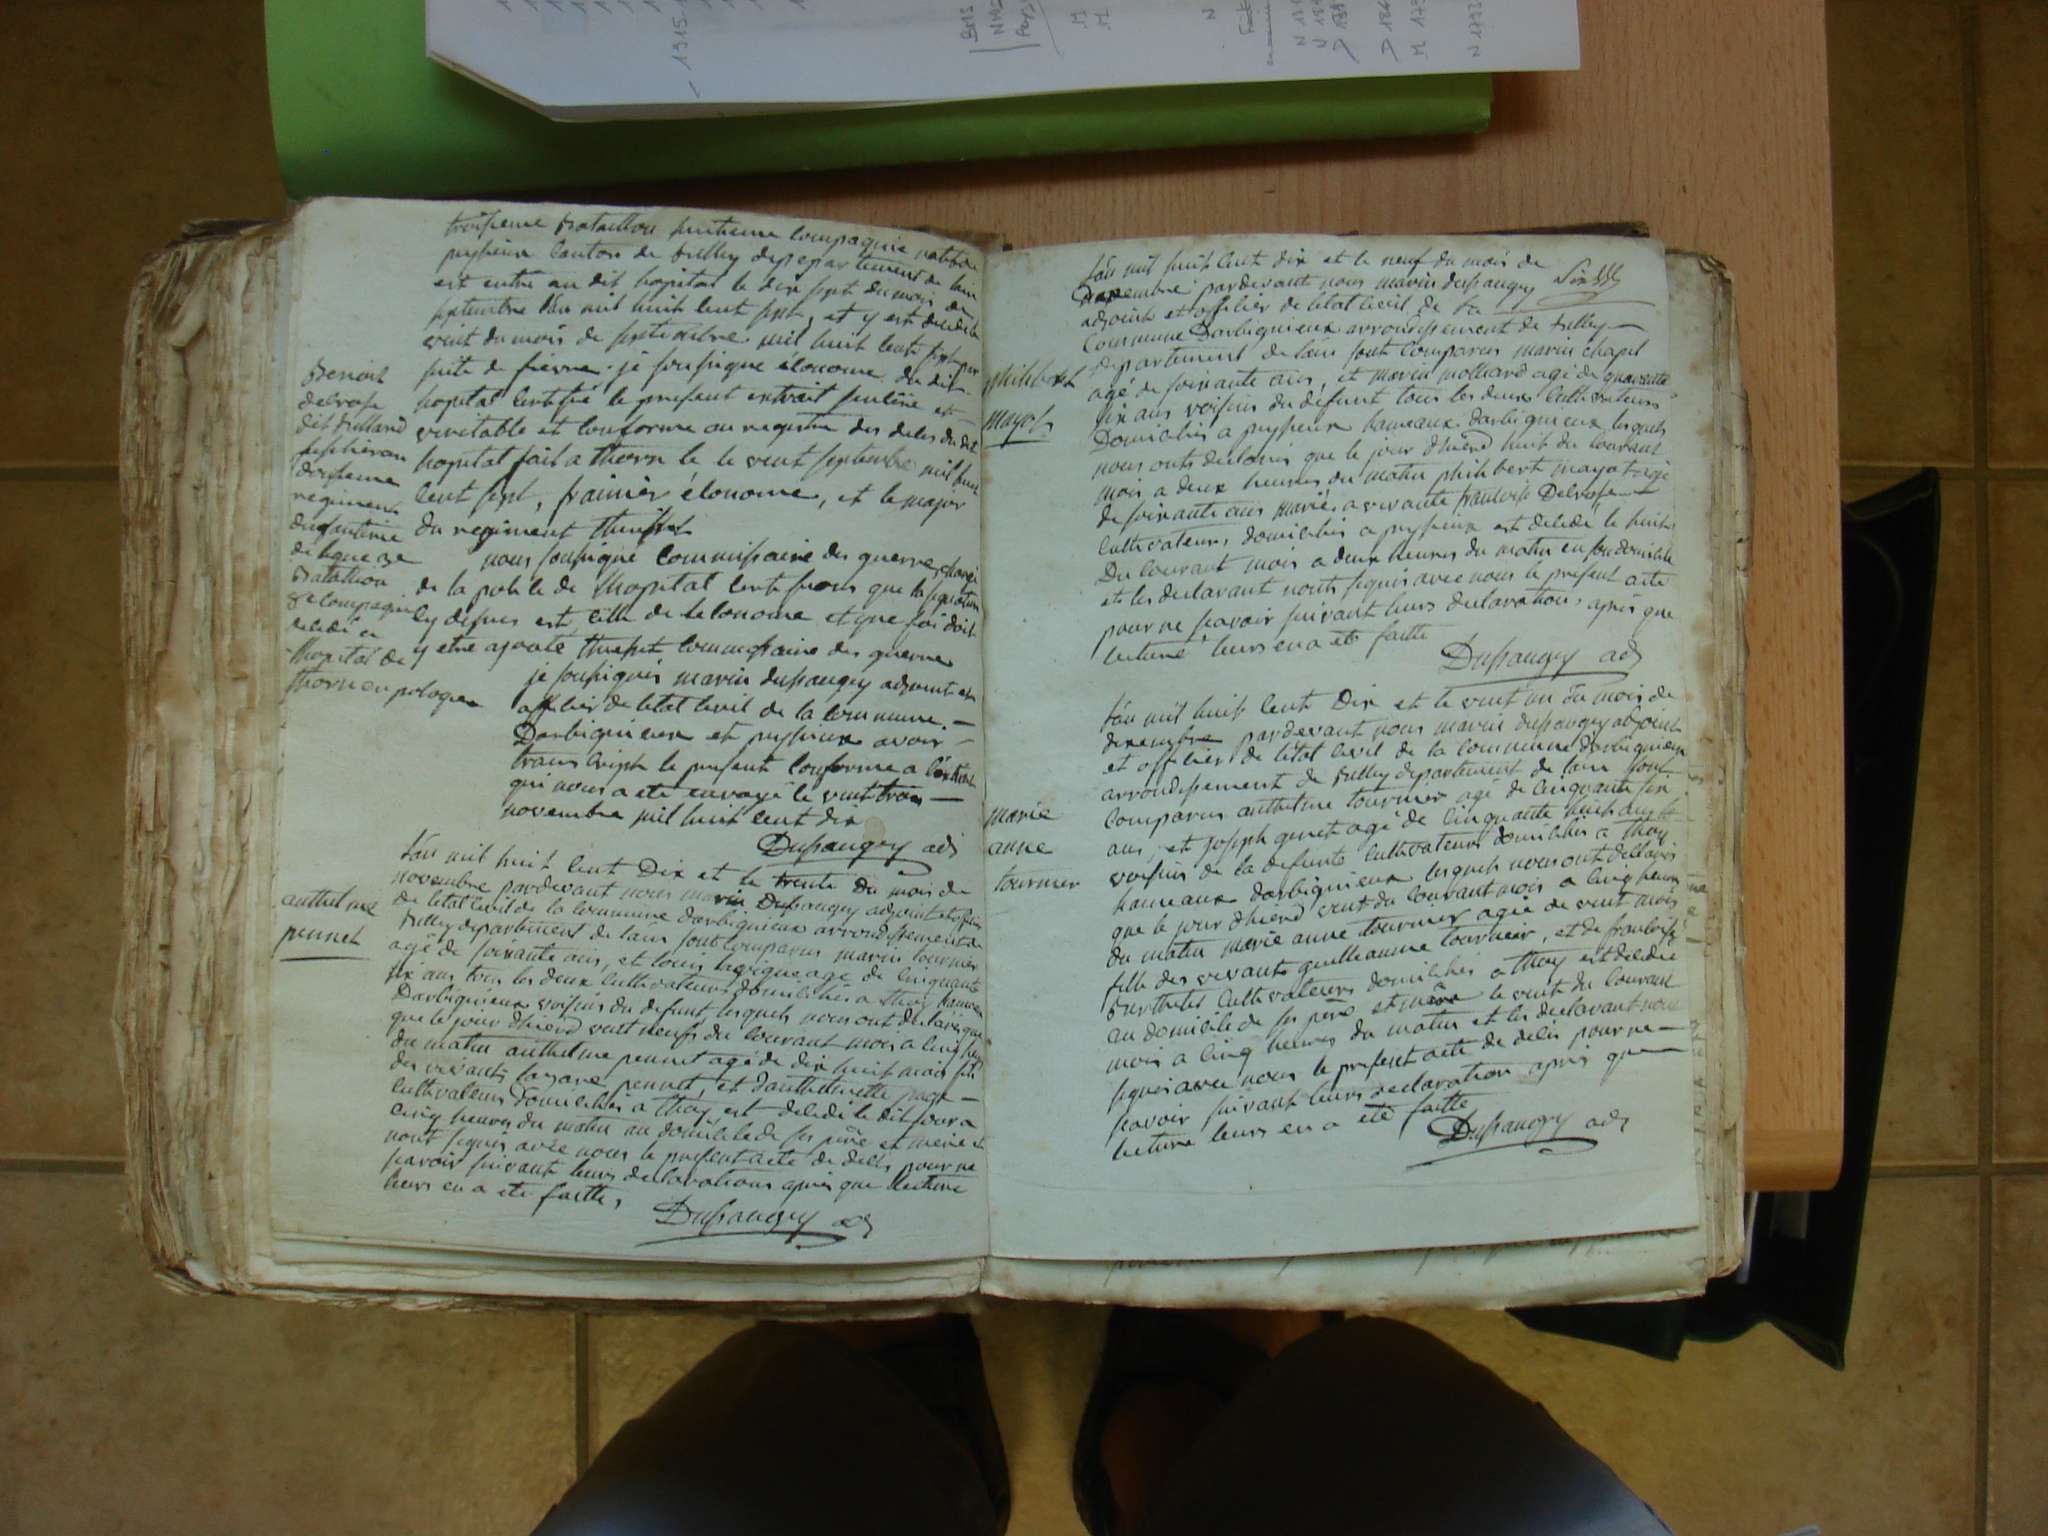 troisieme Bataillon huitieme Compagnie natif de
peyzieux Canton de Belley departement de lain
est entré au dit hopital le dix sept du mois de
septembre lan mil huit cent sept, et y est decedé le
vint du mois de septembre mil huit cent sept par
suite de fievre. je soussigne économe du dit
hopital certifie le present extrait sincere et
veritable et conforme au registre des deces du dit
hopital fait a thorn le le vint septembre mil huit
cent sept, économe, et le major
du regiment
nous soussigné Commissaire des guerres chargé
de la police de lhopital certifions que la signature
cy dessus est celle de leconome et que foi doit
y etre ajouté commissaire des guerres
je soussignés marin dussaugey adjoint et
officier de letat civil de la commune
Darbignieux et peyzieux avoir
transcript le present conforme a lextrait
qui nous a ete envoyé le vint trois
novembre mil huit cent dix
Dussaugey adj
Benoit
delrose
dit
fusilier au
regiment
dinfanterie
de ligne 3e
Bataillon
8e compagnie
decedé a
lhopital de
thorn en pologne
lan mil huit cent Dix et le trente du mois de
novembre pardevant nous marin Dussaugey adjoint et officier
de letat civil de la commune darbignieux arrondissement de
Belley departement de lain sont comparus marin tournier
agé de soixante ans, et louis agé de cinquante
six ans tous les deux cultivateurs domiciliés a thoy hameau
Darbignieux voisins du defunt lesquels nous ont declarés que
que le jour dhierd vint neufs du courant mois a cinq heures
du matin anthelme pennet agé de dix huit mois fils
des vivants lazare pennet, et danthelmette page
cultivateurs domiciliés a thoy est decedé le dit jour a
cinq heures du matin au domicile de ses père et mere et
nont signés avec nous le present acte de deces pour ne
savoir suivant leurs declarations apres que lecture
leurs en a ete faitte,
Dussaugey adj
anthelme
pennet
lan mil huit cent dix et le neuf du mois de
Dexembre pardevant nous marin dussaugey
adjoint et officier de letat civil de la
Commune Darbignieux arrondissement de Belley
departement de lain sont comparus marin chapel
agé de soixante ans, et marin molliard agé de quarante
six ans voisins du defunt tous les deux cultivateurs
Domiciliés a peyzieux hameaux darbignieux lesquels
nous onts declarés que le jour dhierd huit du courant
mois a deux heures du matin philibert mayot agé
de soixante ans mariés a vivante francoise Delrose
cultivateurs domiciliés a peyzieux est decedé le huit
Du courant mois a deux heures du matin en son domicile
et les declarant nonts signés avec nous le present acte
pour ne savoir suivant leurs declarations, après que
lecture leurs en a ete faitte
Dussaugey adj
philibert
mayot
lan mil huit cent Dix et le vint un du mois de
dexembre pardevant nous marin dussaugey adjoint
et officier de létat civil de la commune darbignieux
arrondissement de Belley departement de lain sont
comparus anthelme tournier agé de cinquante six
ans, et joseph agé de cinquante huit ans
voisins de la defunte cultivateurs domiciliés a thoy
hameaux darbignieux lesquels nous ont declarés
que le jour dhierd vint du courant mois a cinq heures
du matin marie anne tournier agée de vint mois
fille des vivants guilleaume tournier, et de francoise
cultivateurs domiciliés a thoy est decedée
au domicile de ses père et mère le vint du courant
mois a cinq heures du matin et les declarant nont
signés avec nous le present acte de deces pour ne
savoir suivant leurs declaration apres que
lecture leurs en a ete faitte
Dussaugey adj
marie
anne
tournier